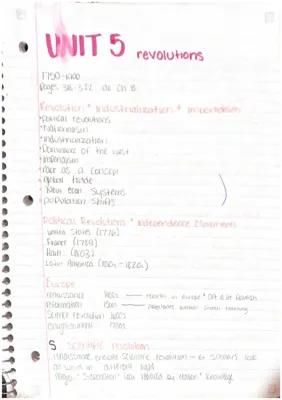 UNIT 5 revolutions
1750-1900
Pages 516-522 Ch 18
Revolution * Industrialization * Imperialism
• political revolutions
• Nationalism
• industrialization
• Dominance of the West
• imperialism
• Race as a concept
• global trade
• New Econ Systems
• population shifts
Political Revolutions * Independence Movements
United States (1776)
France (1789)
Haiti (1803)
Latin America (1810s-1820s)
Europe
renaissance in Europe * art & lit flourish
reformation
Scientific revolution 1600s
enlightenment 1700s
Scientific revolution
renaissance scientific revolution scholars look
at world in different ways
"superstition" reason knowledge